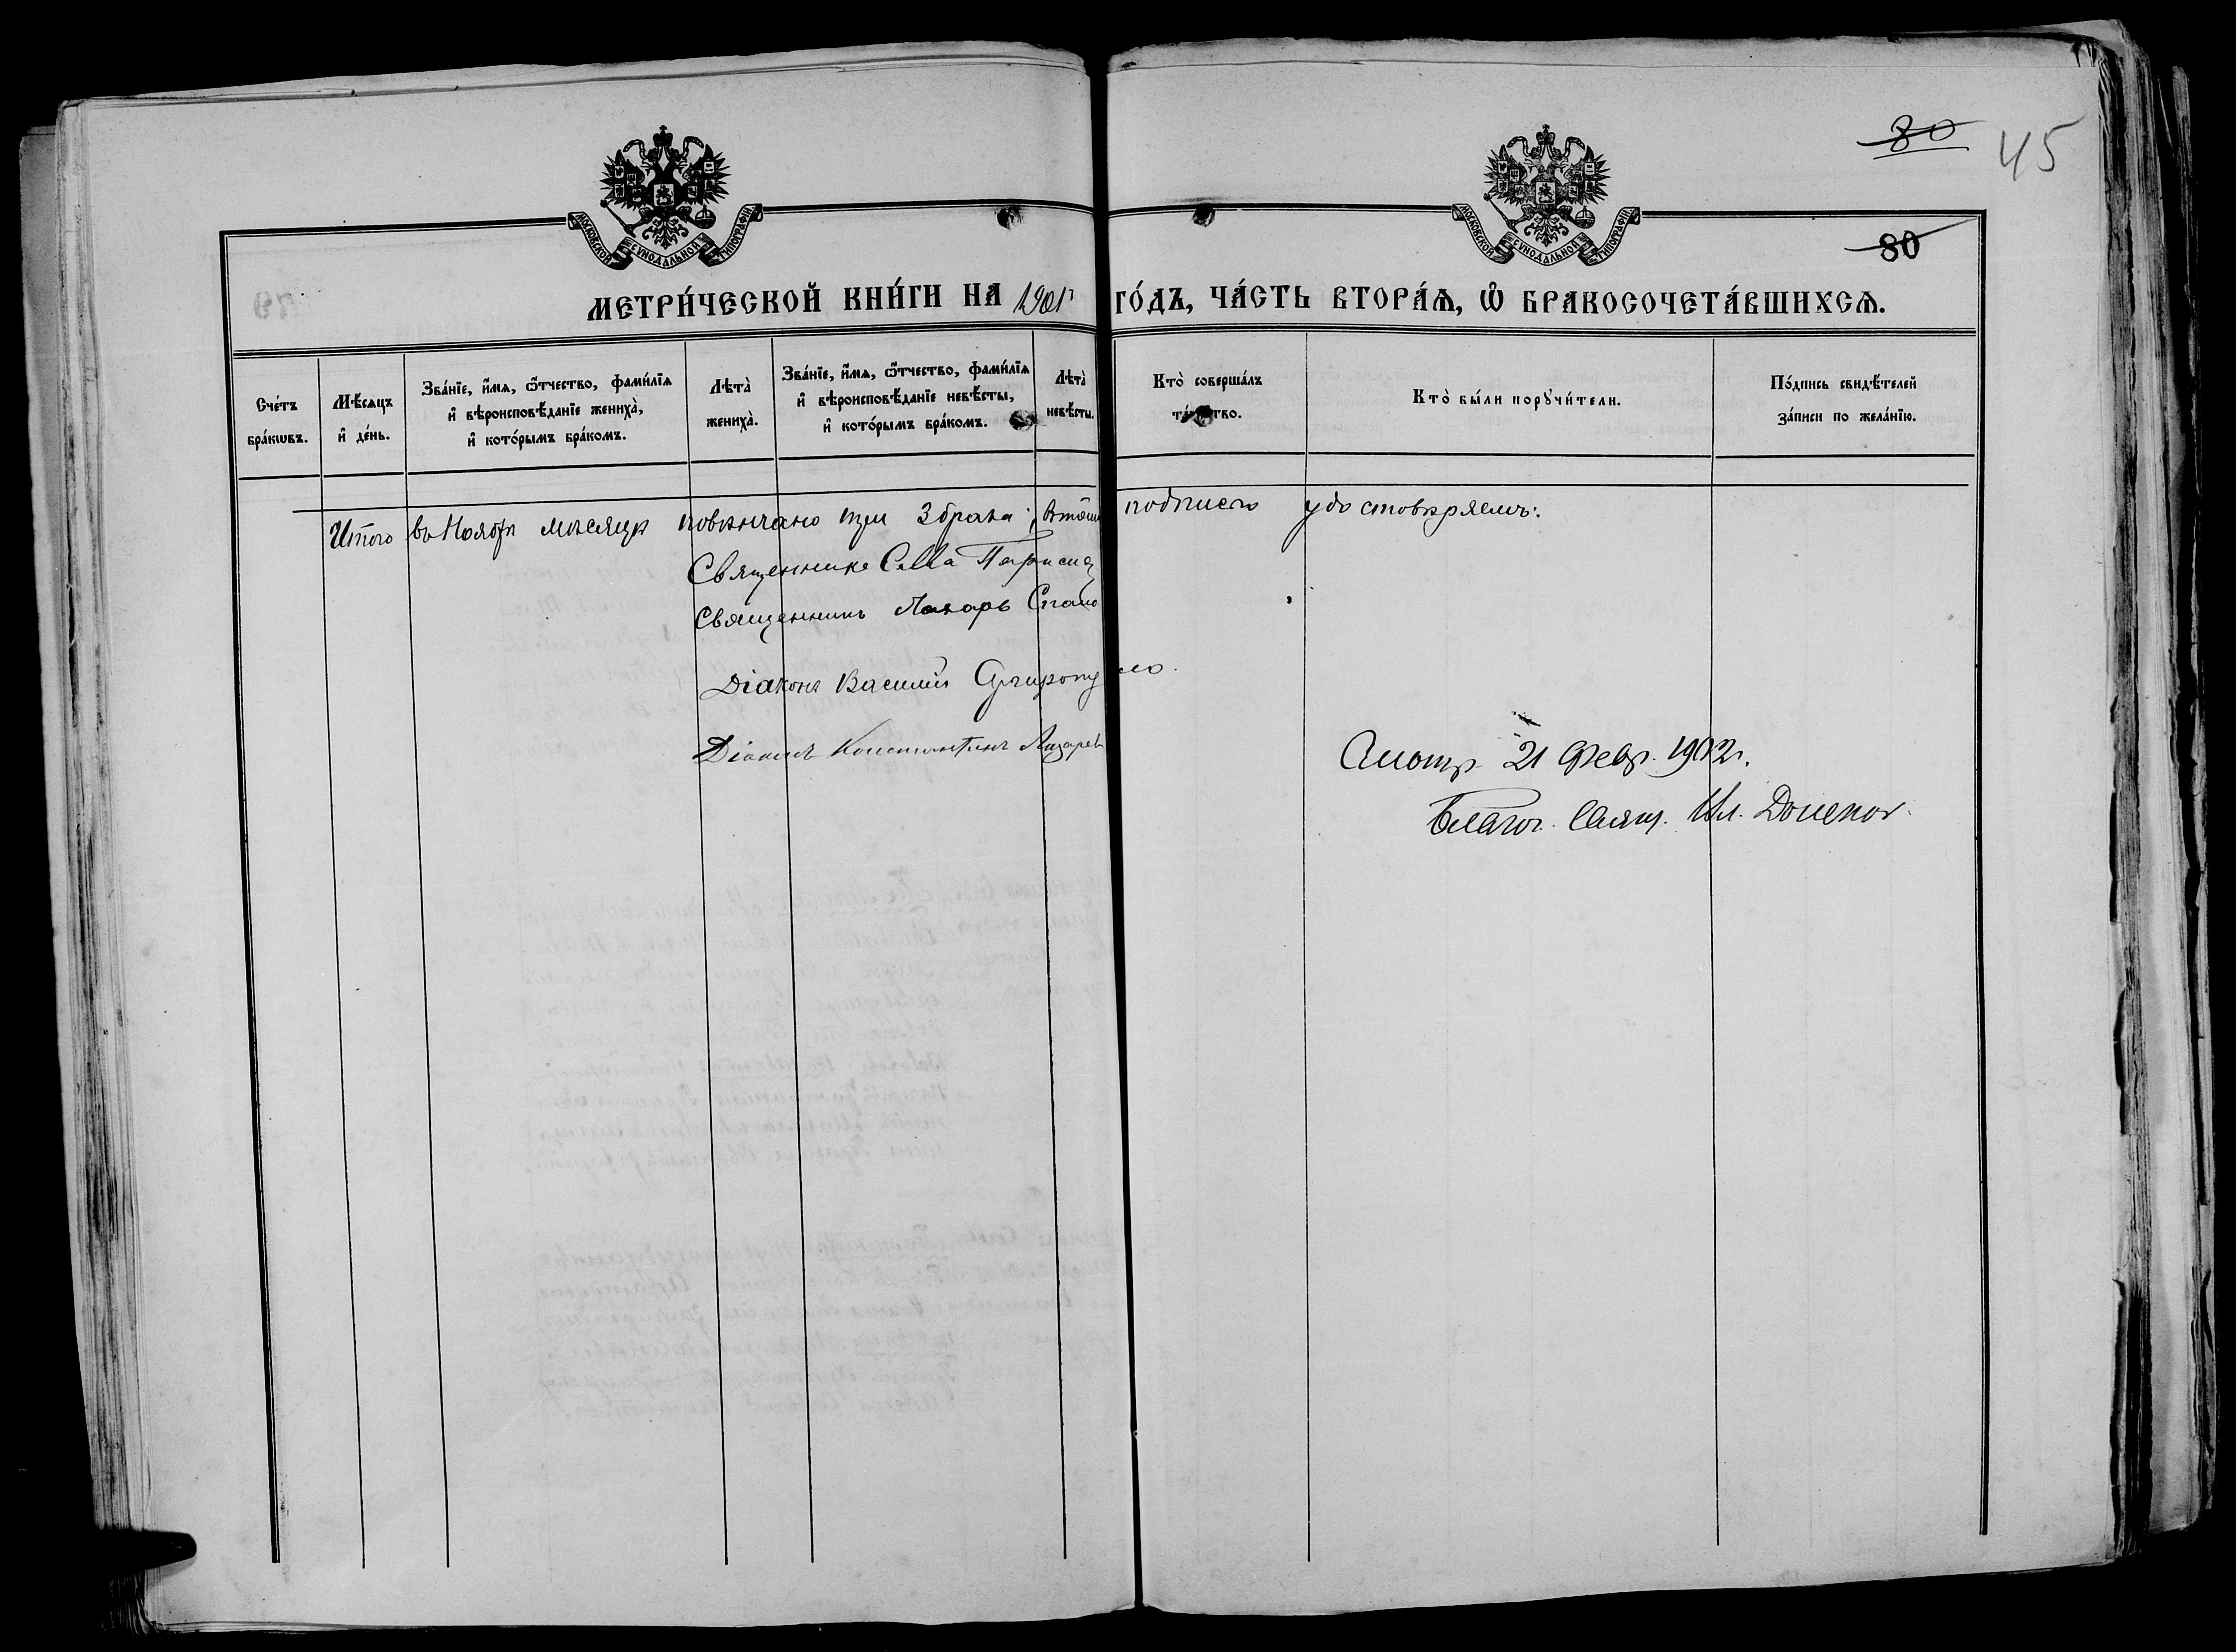 80 45
МОСКОВСКОЙ СѴНОДАЛЬНОЙ ТИПОГРАФІИ
МОСКОВСКОЙ СѴНОДАЛЬНОЙ ТИПОГРАФІИ
80
МЕТРИ́ЧЕСКОЙ КНИ́ГИ НА 1901 ГО́ДЪ, ЧА́СТЬ ВТОРА́Ѧ, Ѽ БРАКОСОЧЕТА́ВШИХСѦ.
Сче́тъ бра́кѡвъ.
Мѣ́сяцъ и҆ де́нь.
Зва́нїе, и҆́мѧ, ѻ҆́тчество, фами́лїѧ и҆ вѣроисповѣ́данїе жениха̀, и҆ кото́рымъ бра́комъ.
Лѣта̀ жениха̀.
Зва́нїе, и҆́мѧ, ѻ҆́тчество, фами́лїѧ и҆ вѣроисповѣ́данїе невѣ́сты, и҆ кото́рымъ бра́комъ.
Лѣта̀ невѣ́сты.
Кто̀ соверша́лъ та́ тво.
Кто̀ бы́ли порꙋчи́тели.
По́дпись свидѣ́телей за́писи по жела́нїю.
Итого въ Ноябрѣ мѣсяцѣ повѣнчано три 3 брака; подписью удостовѣряемъ:
Священникъ Савва
Священникъ Лазарь
Діаконъ Василій
Діаконъ Константинъ Лазарев
Смотр. 21 Февр. 1902 г.
Благоч. Свящ. Ил.